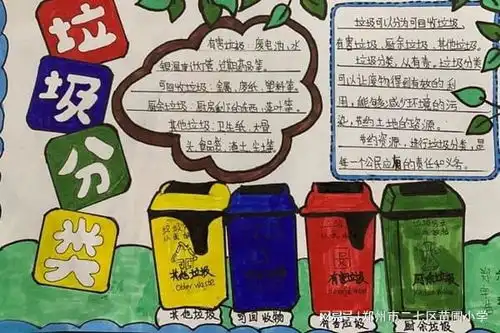 垃
圾
分
类
有害垃圾：废电池、水
银温度计灯管、过期药品等。
可回收垃圾：金属、废纸、塑料等。
厨余垃圾：厨房剩下的东西、菜叶等。
其他垃圾：卫生纸、大骨
头、食品袋、渣土、尘土等
垃圾可以分为可回收垃圾、
有害垃圾、厨余垃圾、其他垃圾。
垃圾分类，从有责。垃圾分类
可以让废物得到有效的利
用，能够减少环境的污
染，节约土地的资源。
节约资源，进行垃圾分类，是
每一个公民应有的责任和义务。
其他垃圾
Other Waste
有害垃圾
厨余垃圾
其他垃圾
可回收物
有害垃圾
厨余垃圾
搜狐号@郑州市二七区苗圃小学